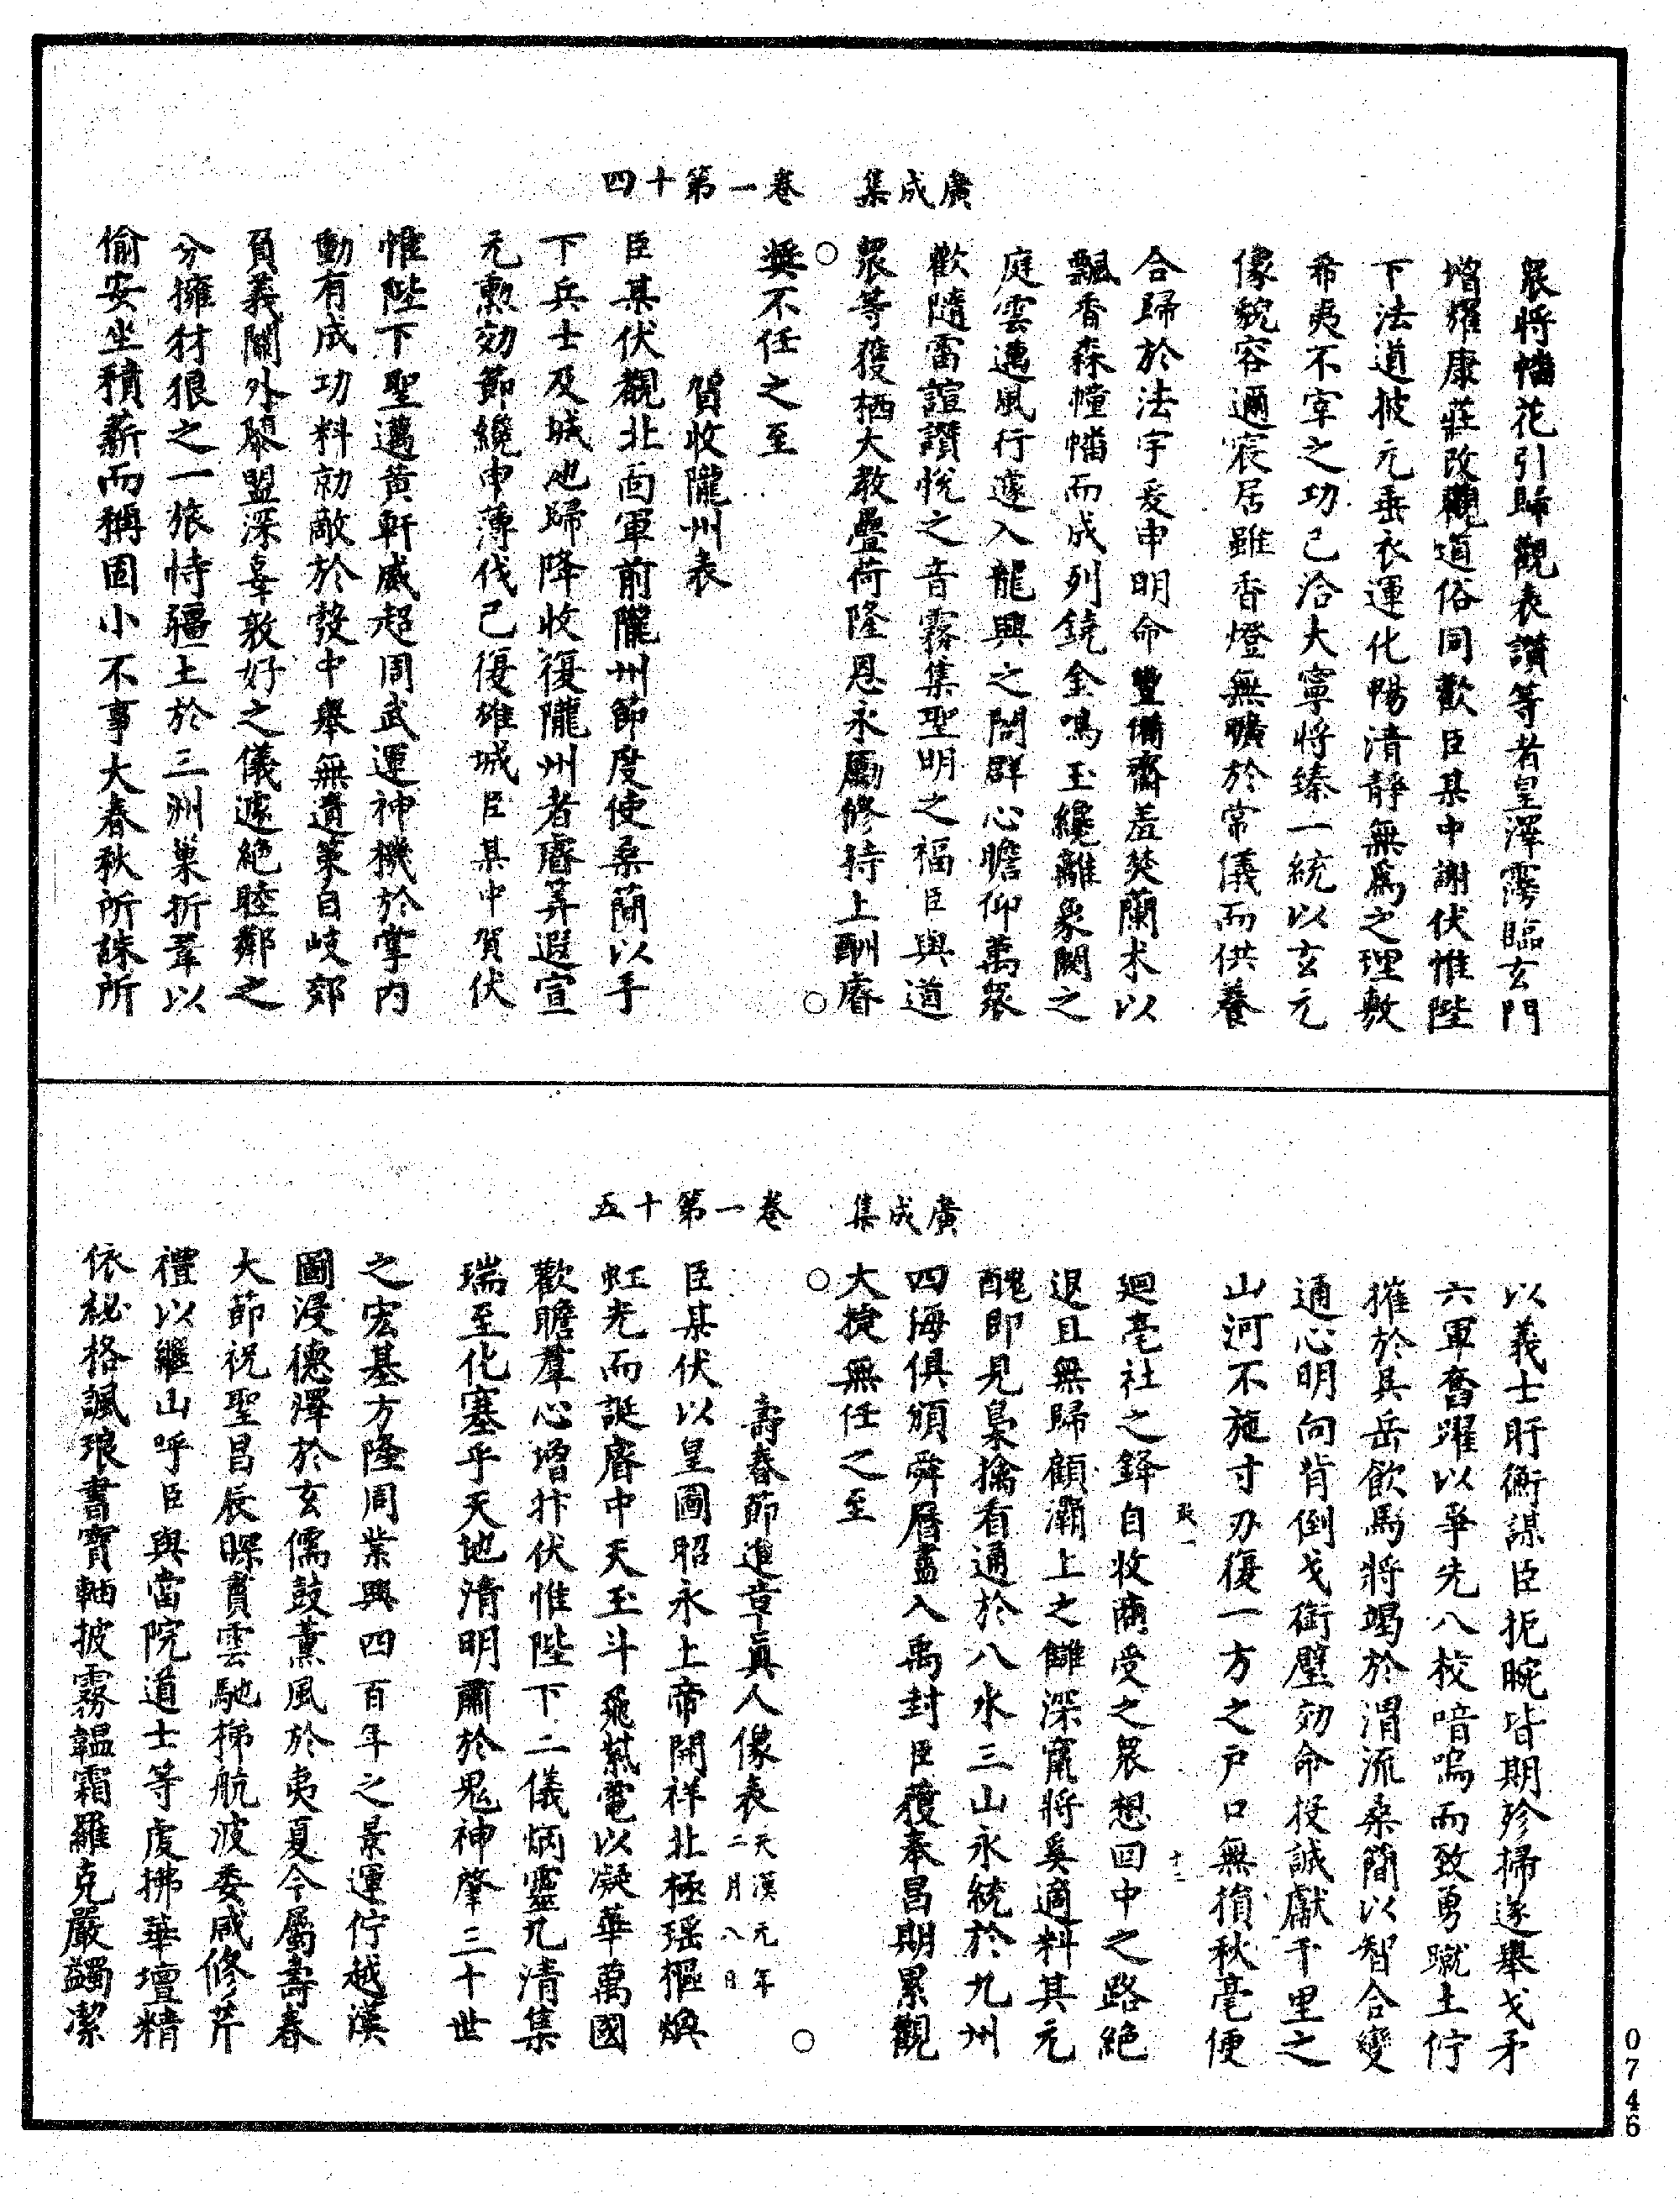 廣成集　卷一第十四
眾將幡花引歸觀表讚等者皇澤霶臨玄門
增耀康莊改觀道俗同歡臣某中謝伏惟陛
下法道披元垂衣運化暢清靜無爲之理敷
希夷不宰之功已洽大寧將臻一統以玄元
像貌容邇宸居雖香燈無曠於常儀而供養
合歸於法宇爰申明命豐備齋羞焚蘭朮以
飄香森幢幡而成列鐃金鳴玉纔離象闕之
庭雲邁風行遽入龍興之閤群心瞻仰萬眾
歡隨雷諠讚悅之音霧集聖明之福臣與道
眾等獲栖大教疊荷隆恩永勵修持上酬睿
獎不任之至
賀收隴州表
臣某伏觀北面軍前隴州節度使桑簡以手
下兵士及城池歸降收復隴州者睿筭遐宣
元勲効節纔申薄伐已復雄城臣某中賀伏
惟陛下聖邁黃軒威超周武運神機於掌內
動有成功料勍敵於彀中舉無遺策自岐郊
負義關外隳盟深辜敦好之儀遽絕睦鄰之
分擁豺狼之一旅恃疆土於三州巢折葦以
偷安坐積薪而稱固小不事大春秋所誅所
廣成集　卷一第十五
以義士盱衡謀臣扼腕皆期殄掃遂舉戈矛
六軍奮躍以爭先八校喑嗚而致勇蹴土佇
摧於具岳飲馬將竭於渭流桑簡以智合變
通心明向背倒戈銜璧効命投誠獻千里之
山河不施寸刃復一方之戶口無損秋毫便
廻亳社之鋒自收商受之眾想回中之路絕
退且無歸顧灞上之讎深竄將奚適料其元
醜即見梟擒看通於八水三山永統於九州
四海俱頒舜曆盡入禹封臣獲奉昌期累觀
大捷無任之至
壽春節進章真人像表天漢元年二月八日
臣某伏以皇圖昭永上帝開祥北極瑶樞煥
虹光而誕睿中天玉斗飛紫電以凝華萬國
歡瞻羣心增抃伏惟陛下二儀炳靈九清集
瑞至化塞乎天地清明肅於鬼神肇三十世
之宏基方隆周業興四百年之景運佇越漢
圖浸德澤於玄儒鼓薰風於夷夏今屬壽春
大節祝聖昌辰睬賮雲馳梯航波委咸修芹
禮以繼山呼臣與當院道士等虔拂華壇精
依祕格諷琅書寶軸披霧韞霜羅克嚴蠲潔
十二
0746